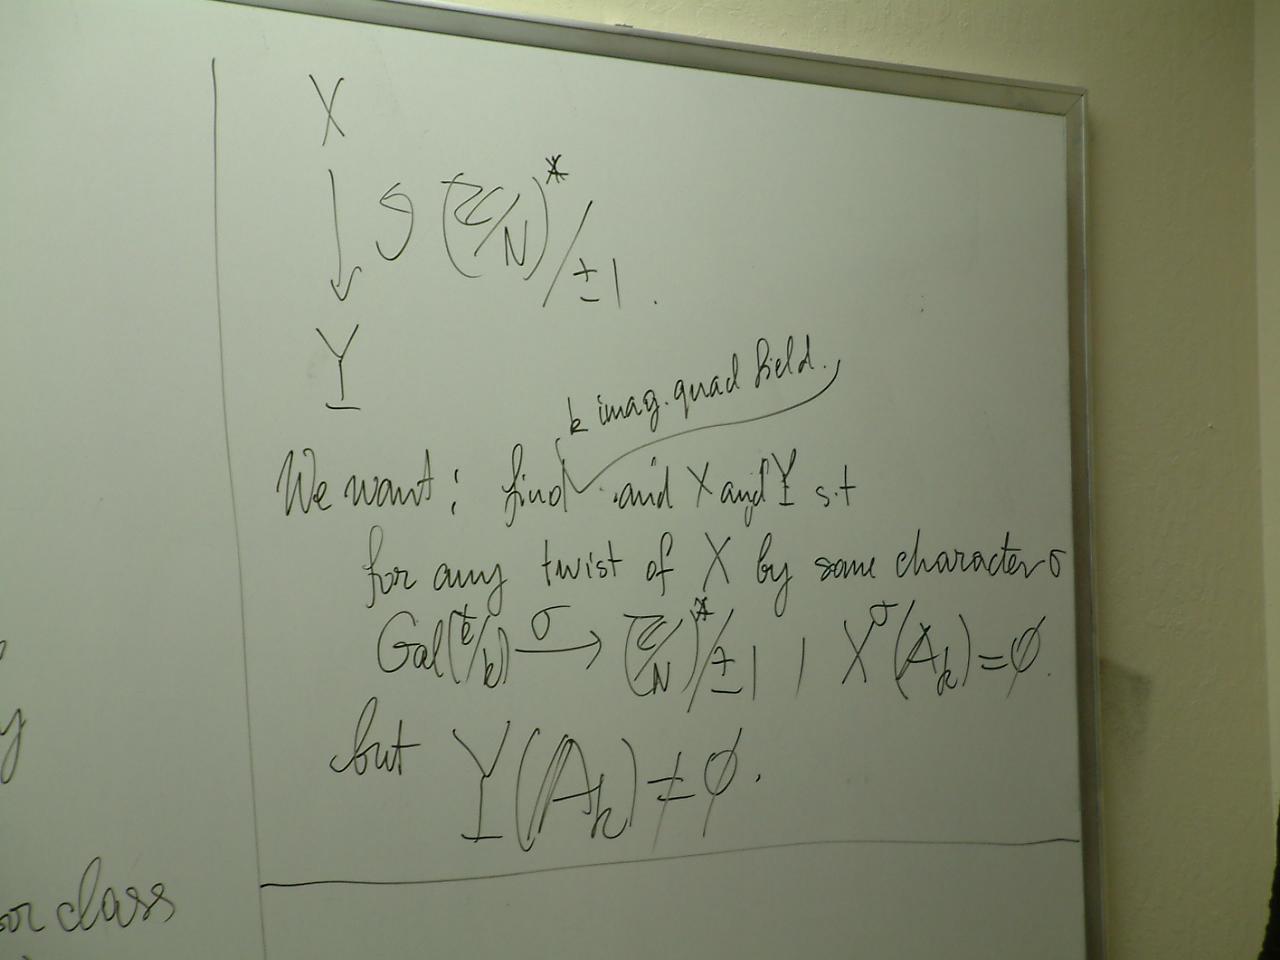 X
↓ ↺ (ℤ/N)*/±1 .
Y
k imag. quad field.
We want : find and X and Y s.t
for any twist of X by some character σ
Gal(k̄/k) σ→ (ℤ/N)*/±1 , X^σ(A_k) = ∅.
but Y(A_k) ≠ ∅.
y
or class